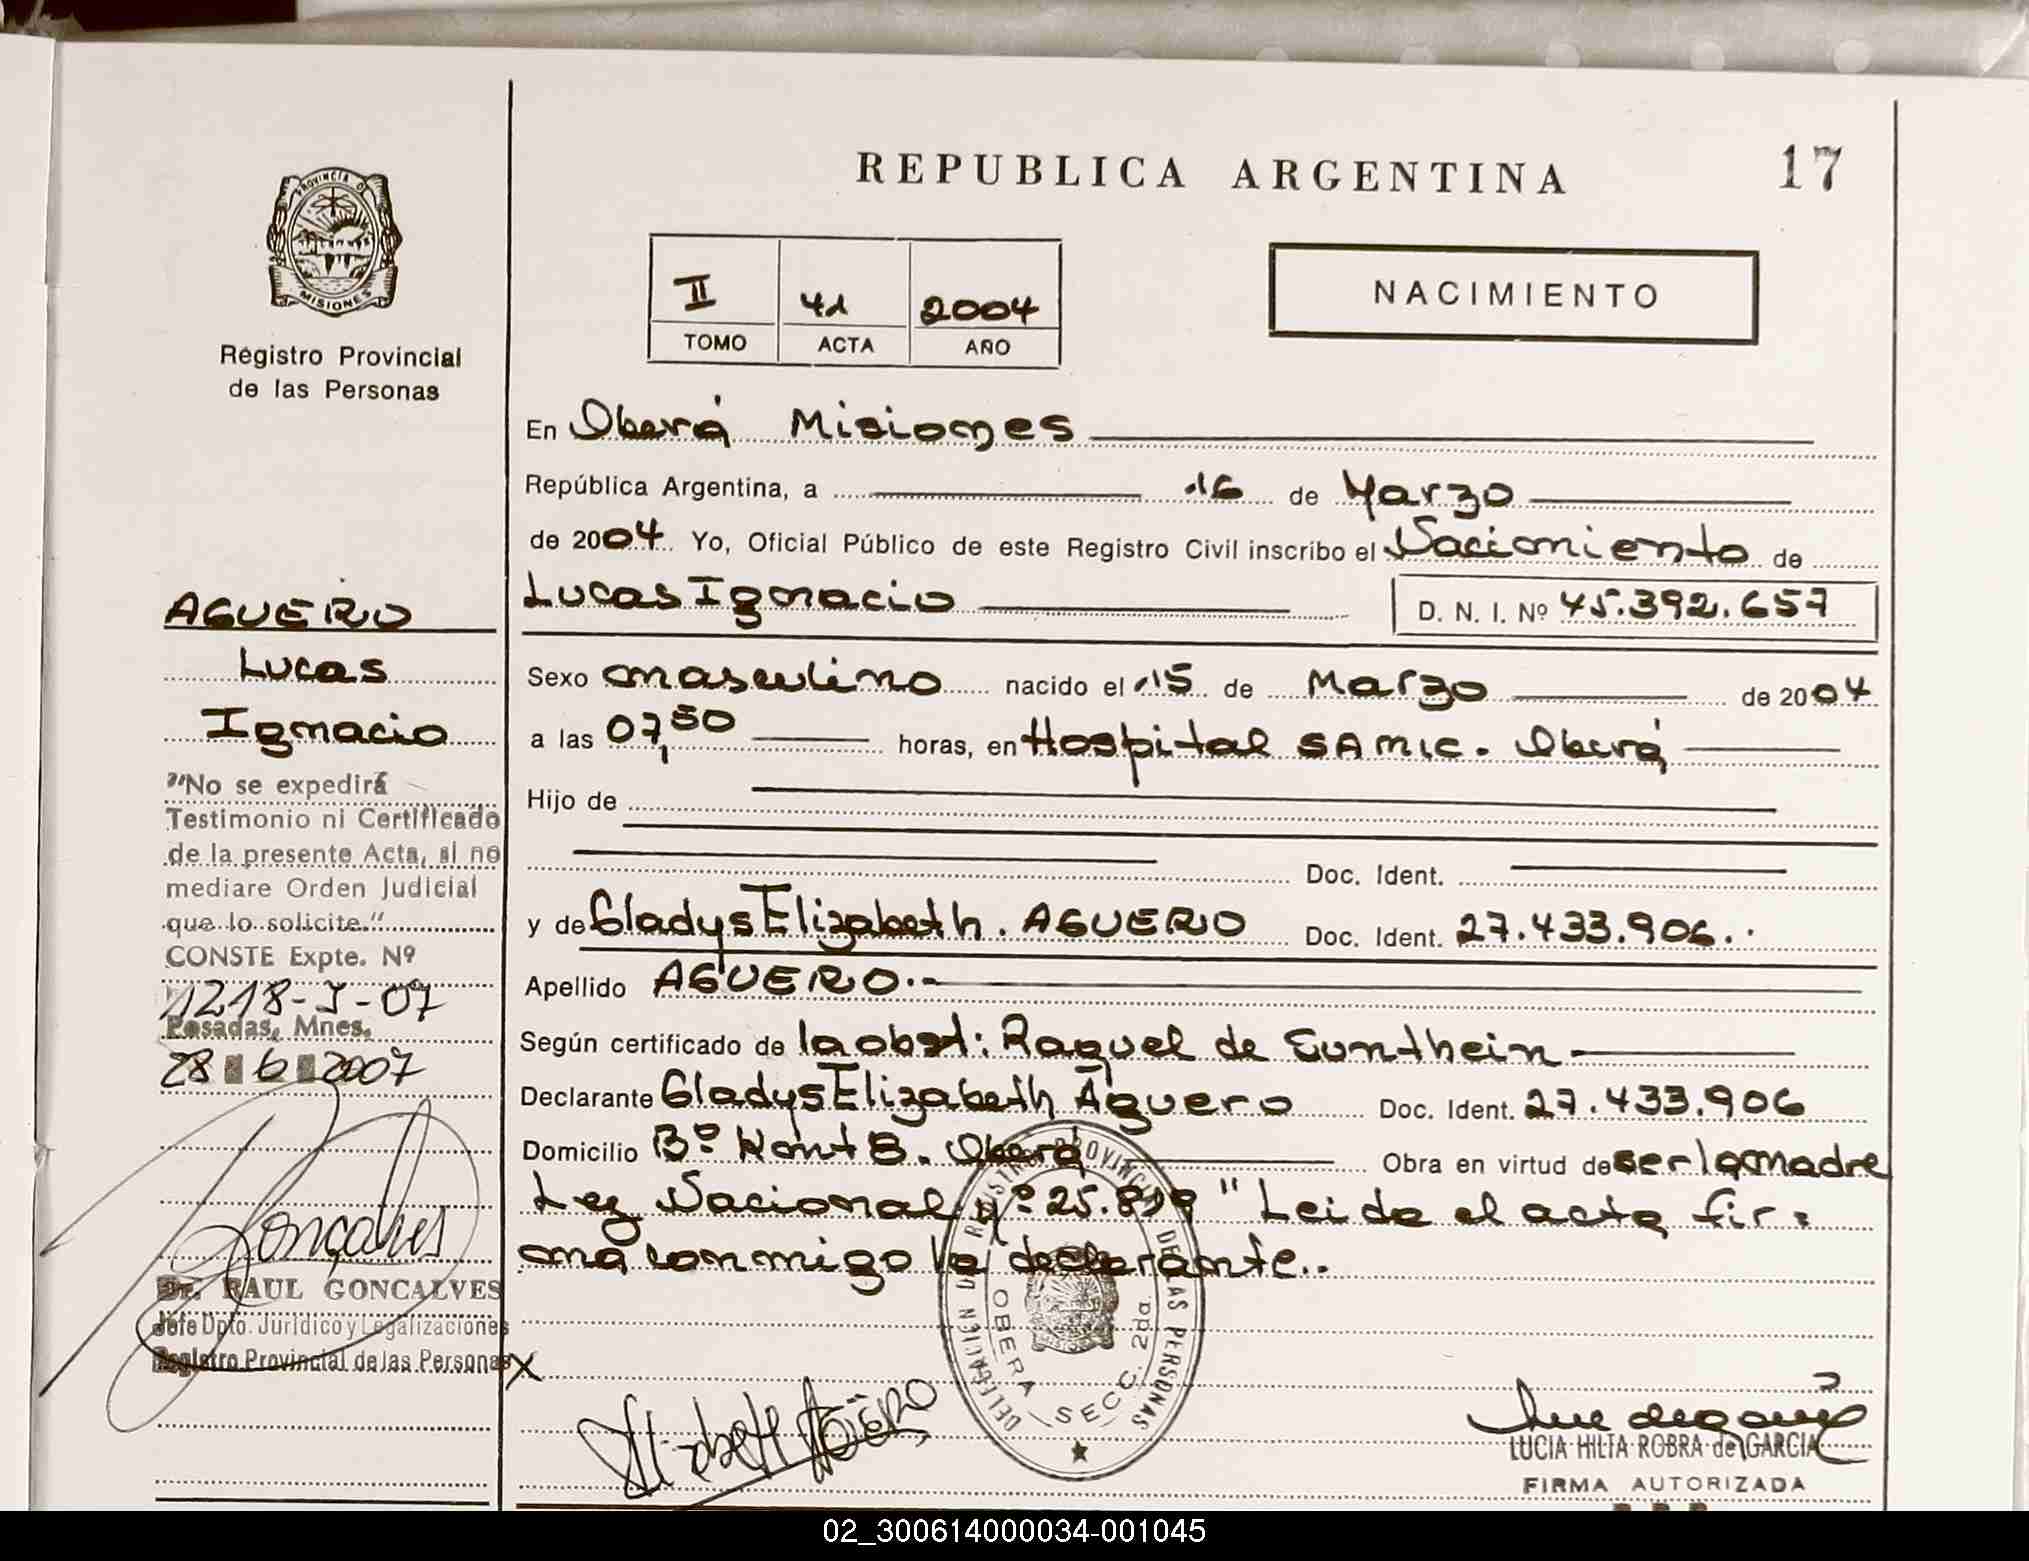 REPUBLICA ARGENTINA
17
PROVINCIA D
MISIONES
Registro Provincial
de las Personas
II 41 2004
TOMO ACTA AÑO
NACIMIENTO
En Oberá Misiones
República Argentina, a 16 de Marzo
de 2004 Yo, Oficial Público de este Registro Civil inscribo el Nacimiento de
Lucas Ignacio D. N. I. Nº 45.392.657
Sexo masculino nacido el 15 de Marzo de 2004
a las 07,50 horas, en Hospital SAMIC. Oberá
Hijo de
Doc. Ident.
y de Gladys Elizabeth. AGUERO Doc. Ident. 27.433.906..
Apellido AGUERO.-
Según certificado de la obst: Raquel de
Declarante Gladys Elizabeth Aguero Doc. Ident. 27.433.906
Domicilio Bº Mont 8. Oberá Obra en virtud de ser la madre
Ley Nacional nº: 25.819 " Leida el acta fir=
ma conmigo la declarante..
AGUERO
Lucas
Ignacio
"No se expedirá
Testimonio ni Certificado
de la presente Acta, si no
mediare Orden Judicial
que lo solicite."
CONSTE Expte. Nº
1218-J-07
Posadas, Mnes.
28 6 2007
Gonçalves
Dr. RAUL GONCALVES
Jefe Dpto. Jurídico y Legalizaciones
Registro Provincial de las Personas
X
Elizabeth Agüero
DELEGACION DEL REGISTRO PROVINCIAL DE LAS PERSONAS
OBERA SECC. 2da.
LUCIA HILIA ROBRA de GARCIA
FIRMA AUTORIZADA
02_300614000034-001045